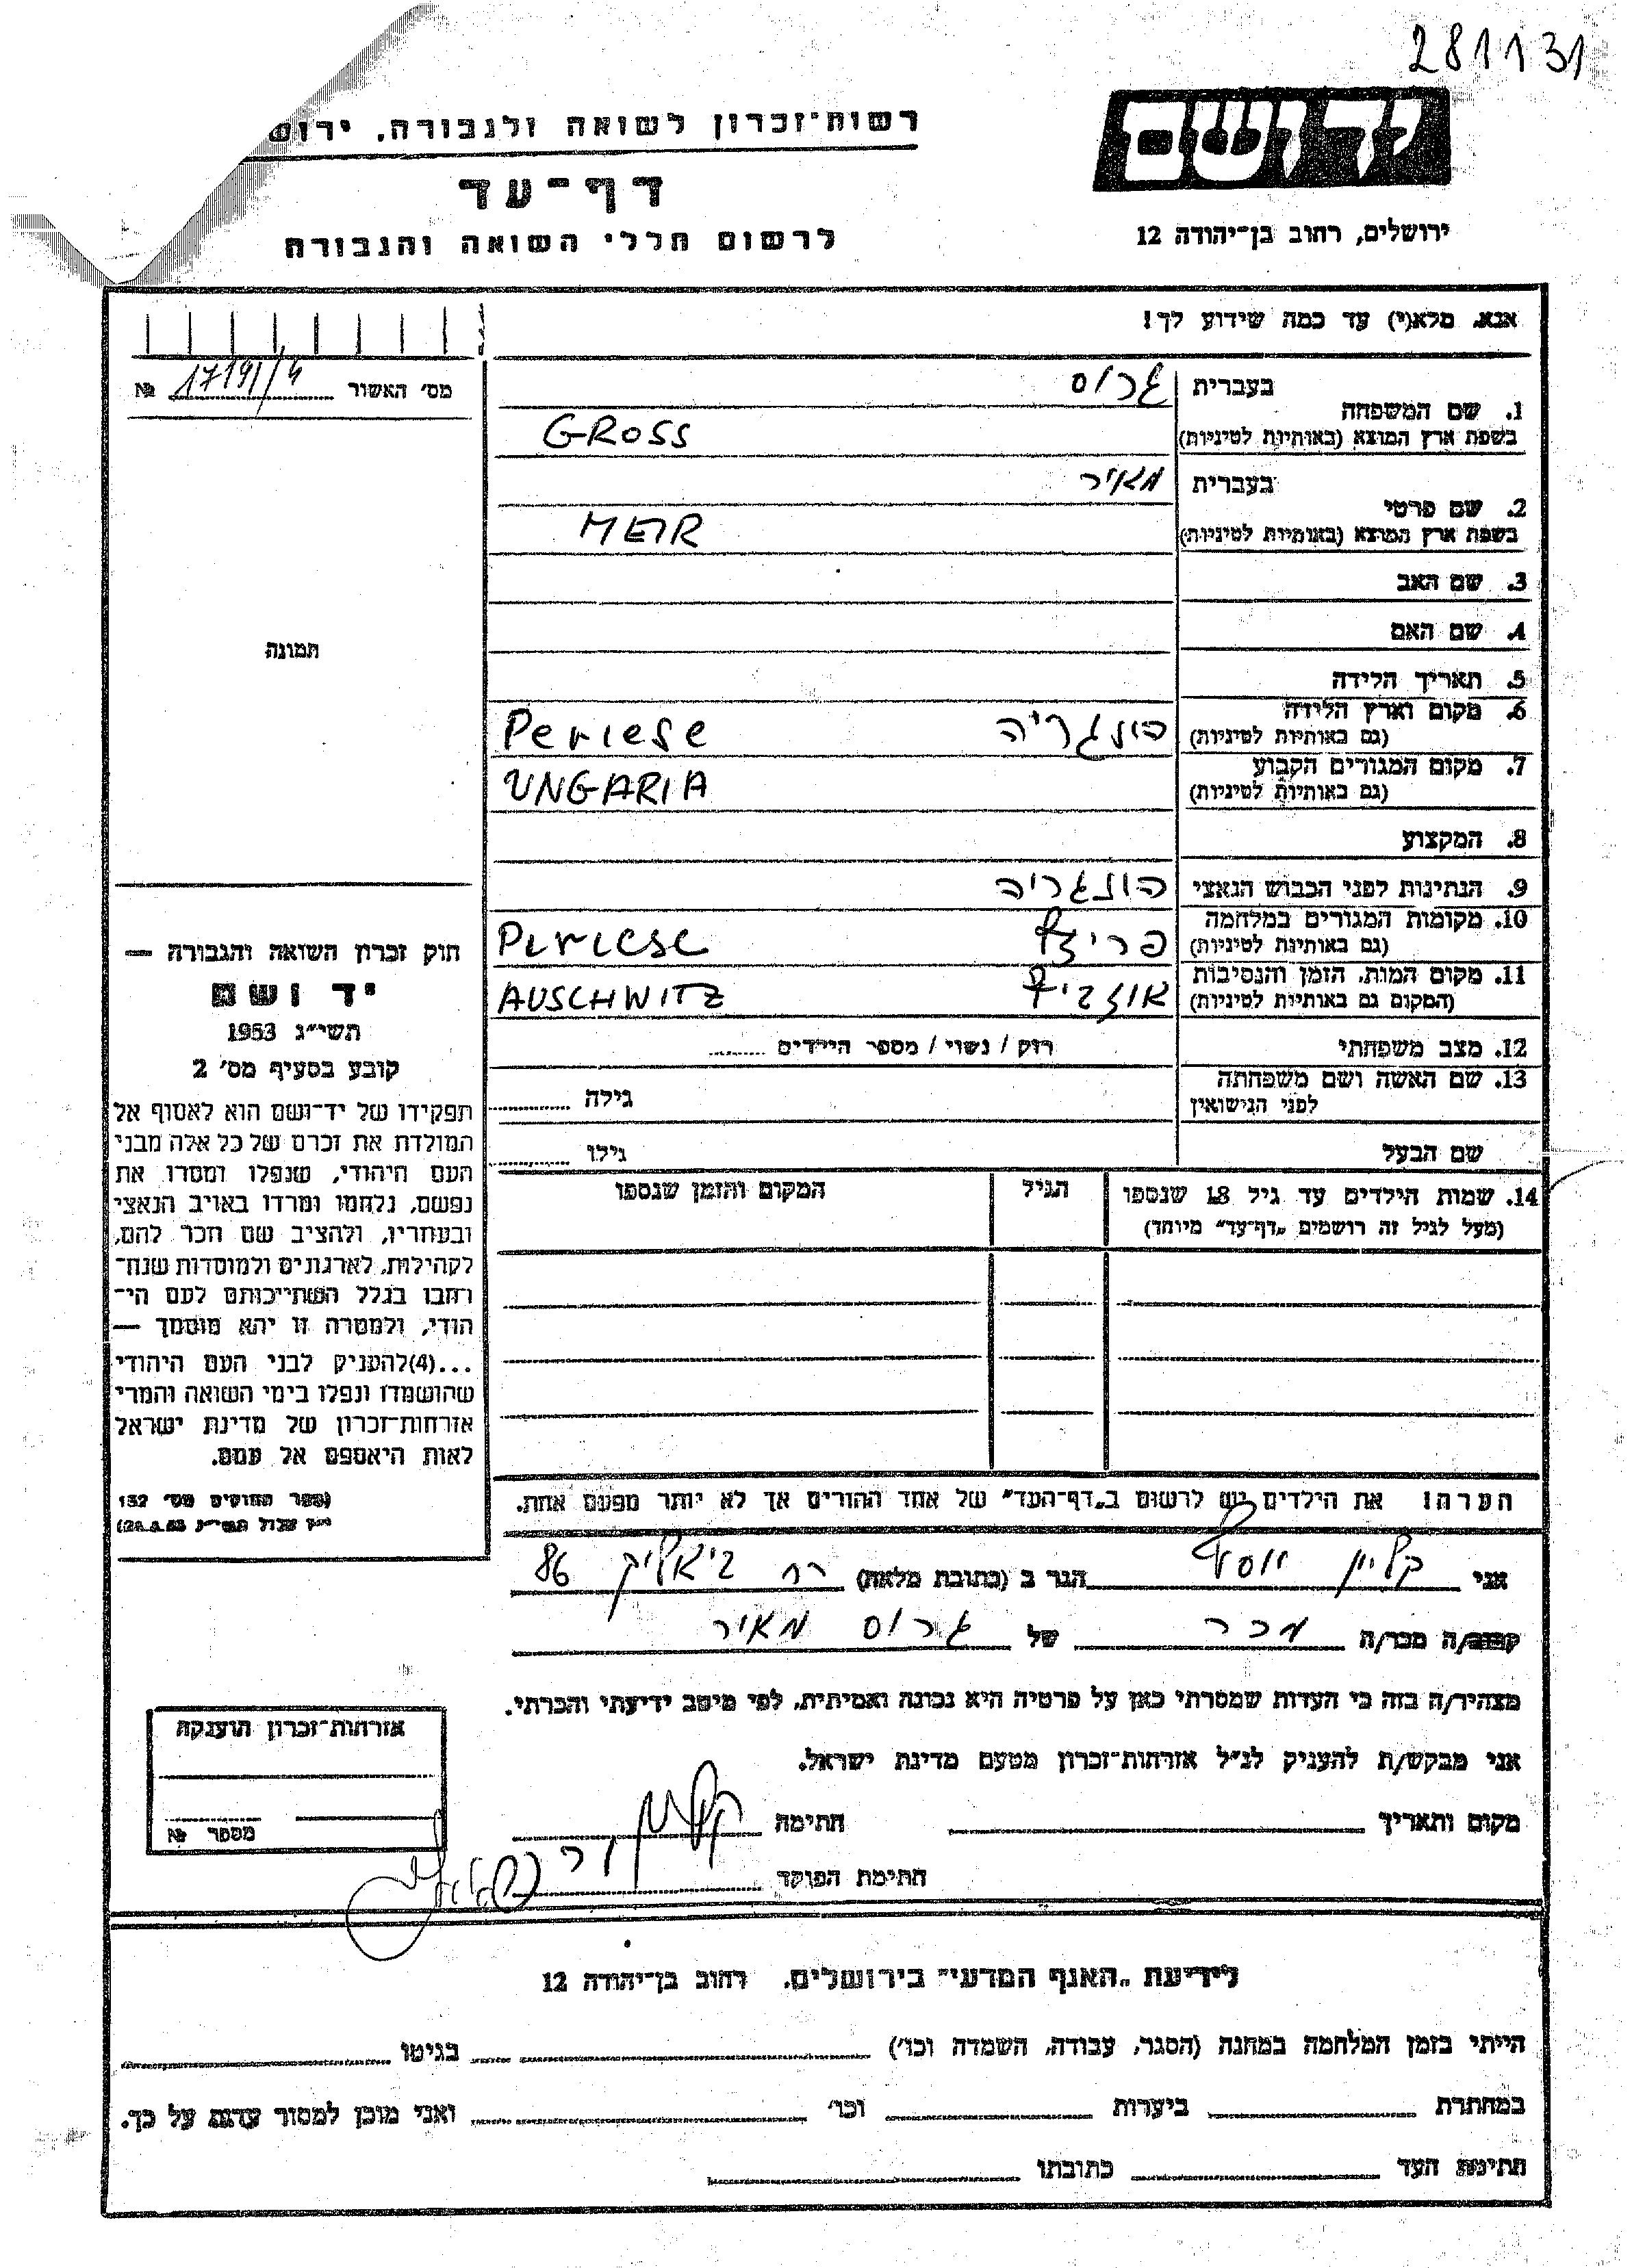 281131
רשות־זכרון לשואה ולגבורה, ירוש
יד ושם
דף־עד
לרשום חללי השואה והגבורה
ירושלים, רחוב בן־יהודה 12
אנא, מלא(י) עד כמה שידוע לך!
מס׳ האשור № 17191/4
1. שם המשפחה
בעברית גרוס
בשפת ארץ המוצא (באותיות לטיניות) GROSS
2. שם פרטי
בעברית מאיר
בשפת ארץ המוצא (באותיות לטיניות) MEIR
3. שם האב
4. שם האם
תמונה
5. תאריך הלידה
6. מקום וארץ הלידה
(גם באותיות לטיניות) הונגריה Periese
7. מקום המגורים הקבוע
(גם באותיות לטיניות) UNGARIA
8. המקצוע
9. הנתינות לפני הכבוש הנאצי הונגריה
10. מקומות המגורים במלחמה
(גם באותיות לטיניות) Periese
11. מקום המות, הזמן והנסיבות
(המקום גם באותיות לטיניות) AUSCHWITZ
12. מצב משפחתי רוק / נשוי / מספר הילדים
13. שם האשה ושם משפחתה
לפני הנישואין גילה
שם הבעל גילו
14. שמות הילדים עד גיל 18 שנספו
(מעל לגיל זה רושמים „דף־עד” מיוחד)
הגיל
המקום והזמן שנספו
הערה! את הילדים יש לרשום ב„דף־העד” של אחד ההורים אך לא יותר מפעם אחת.
חוק זכרון השואה והגבורה —
יד ושם
תשי״ג 1953
קובע בסעיף מס׳ 2
תפקידו של יד־ושם הוא לאסוף אל
המולדת את זכרם של כל אלה מבני
העם היהודי, שנפלו ומסרו את
נפשם, נלחמו ומרדו באויב הנאצי
ובעוזריו, ולהציב שם וזכר להם,
לקהילות, לארגונים ולמוסדות שנח־
רחבו בגלל השתייכותם לעם הי־
הודי, ולמטרה זו יהא מוסמך —
...(4)להעניק לבני העם היהודי
שהושמדו ונפלו בימי השואה והמרי
אזרחות־זכרון של מדינת ישראל
לאות היאספם אל עמם.
(ספר החוקים מס׳ 132
אני קליין יוסף הגר ב (כתובת מלאה) רח ביאליק 86
קרוב/ה מכר/ה מכר של גרוס מאיר
מצהיר/ה בזה כי העדות שמסרתי כאן על פרטיה היא נכונה ואמיתית, לפי מיטב ידיעתי והכרתי.
אני מבקש/ת להעניק לנ״ל אזרחות־זכרון מטעם מדינת ישראל.
מקום ותאריך חתימה
חתימת הפוקד
אזרחות־זכרון הוענקה
מספר №
לידיעת „האגף המדעי” בירושלים, רחוב בן־יהודה 12
הייתי בזמן המלחמה במחנה (הסגר, עבודה, השמדה וכו׳) בגיטו
במחתרת ביערות וכו׳ ואני מוכן למסור עדות על כך.
חתימת העד כתובתו